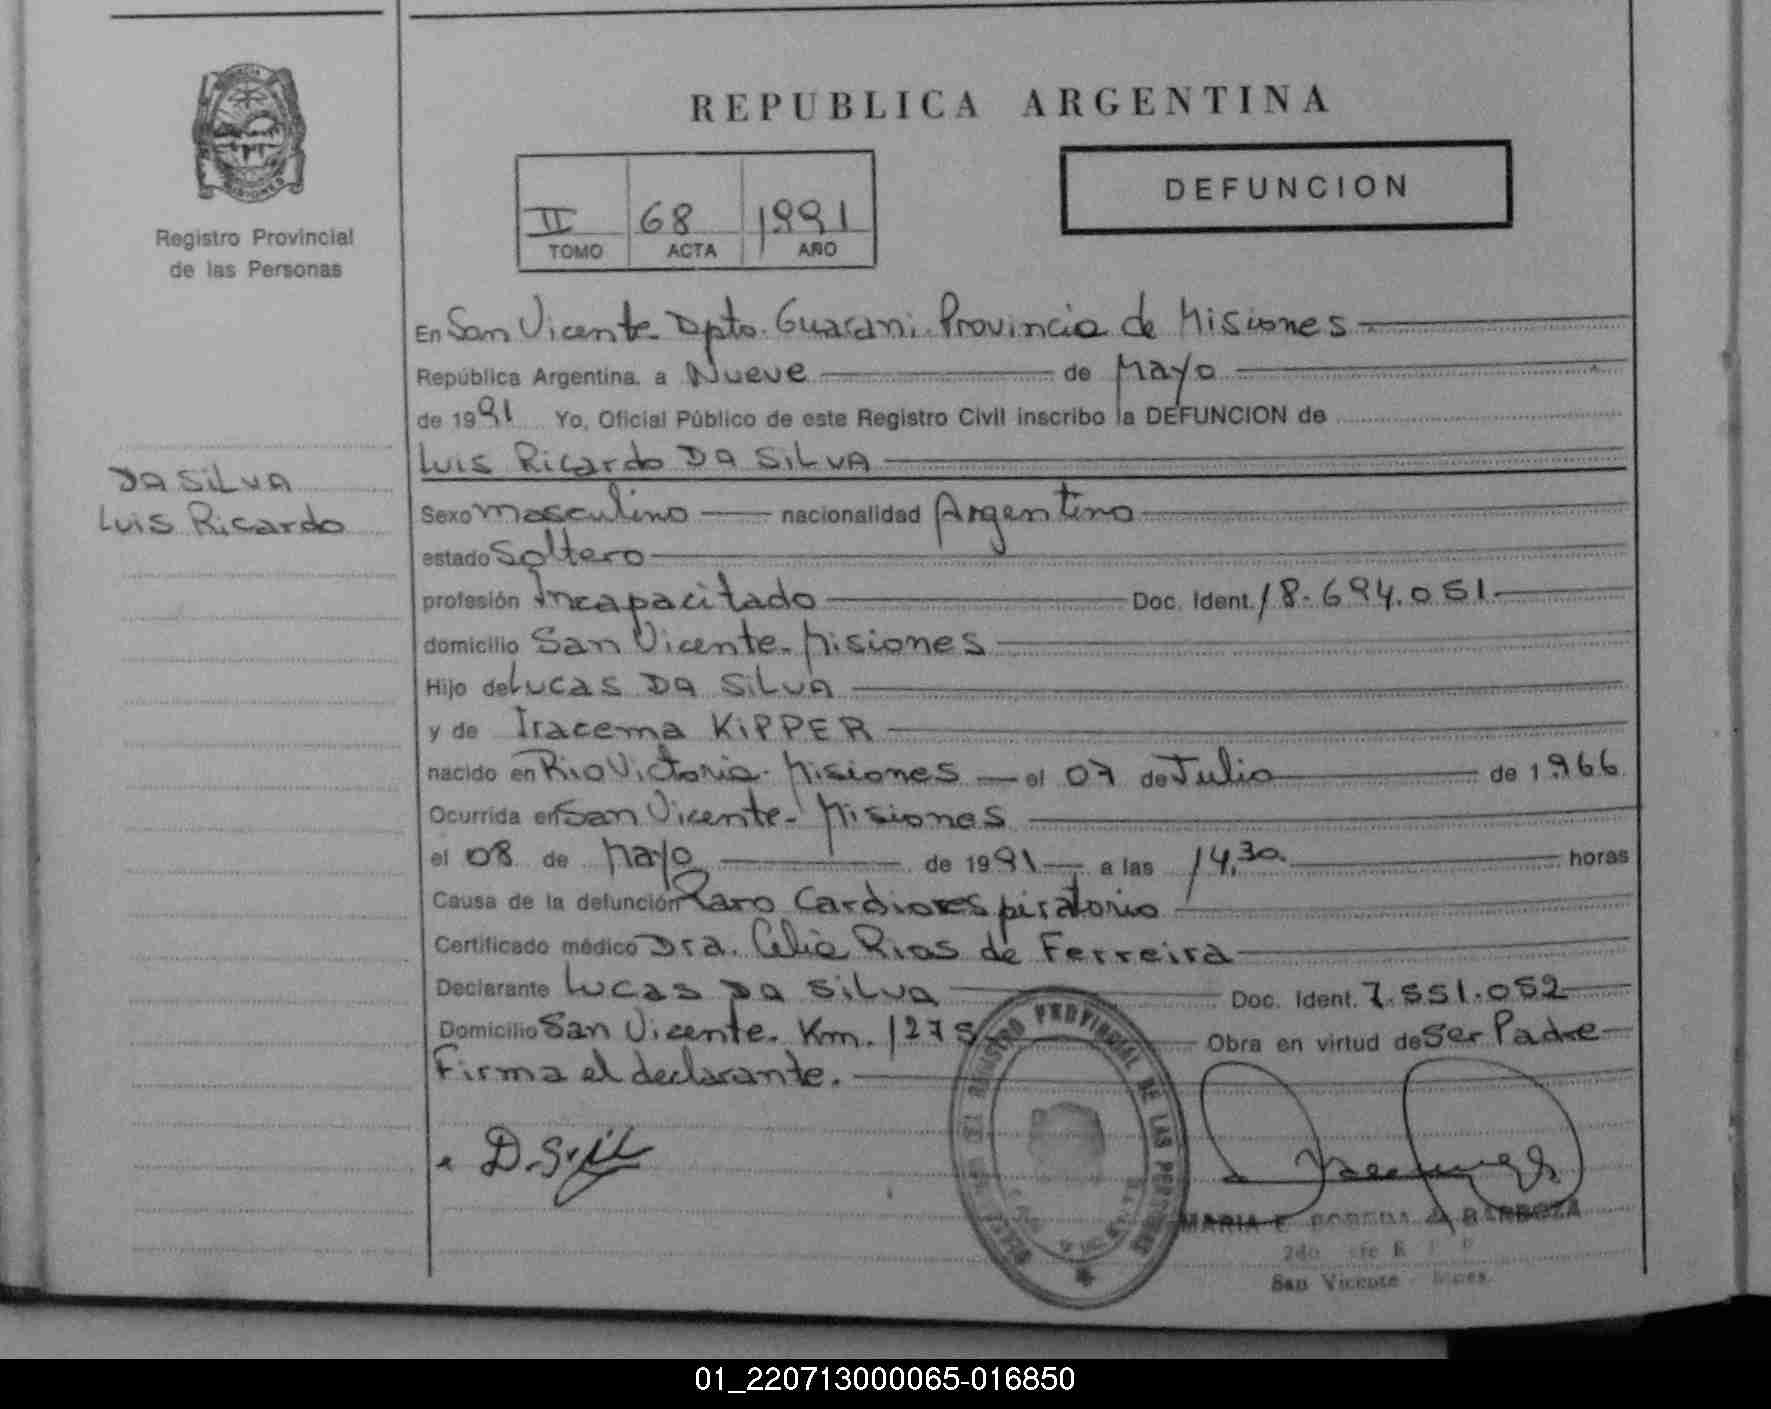 REPUBLICA ARGENTINA
DEFUNCION
II 68 1991
TOMO ACTA AÑO
Registro Provincial
de las Personas
DA SILVA
Luis Ricardo
En San Vicente Dpto. Guarani. Provincia de Misiones
República Argentina, a Nueve de Mayo
de 1991 Yo, Oficial Público de este Registro Civil inscribo la DEFUNCION de
Luis Ricardo DA SILVA
Sexo Masculino nacionalidad Argentino
estado Soltero
profesión Incapacitado Doc. Ident. 18.694.051
domicilio San Vicente. Misiones
Hijo de Lucas DA SILVA
y de Iracema KIPPER
nacido en Rio Victoria. Misiones el 07 de Julio de 1966
Ocurrida en San Vicente - Misiones
el 08 de Mayo de 1991 a las 14,30 horas
Causa de la defunción Paro Cardiorespiratorio
Certificado médico Dra. Celia Rios de Ferreira
Declarante Lucas DA SILVA Doc. Ident. 7.551.052
Domicilio San Vicente. Km. 1275 Obra en virtud de Ser Padre
Firma el declarante.
REGISTRO PROVINCIAL DE LAS PERSONAS
MARIA E. BARBOZA
San Vicente
01_220713000065-016850